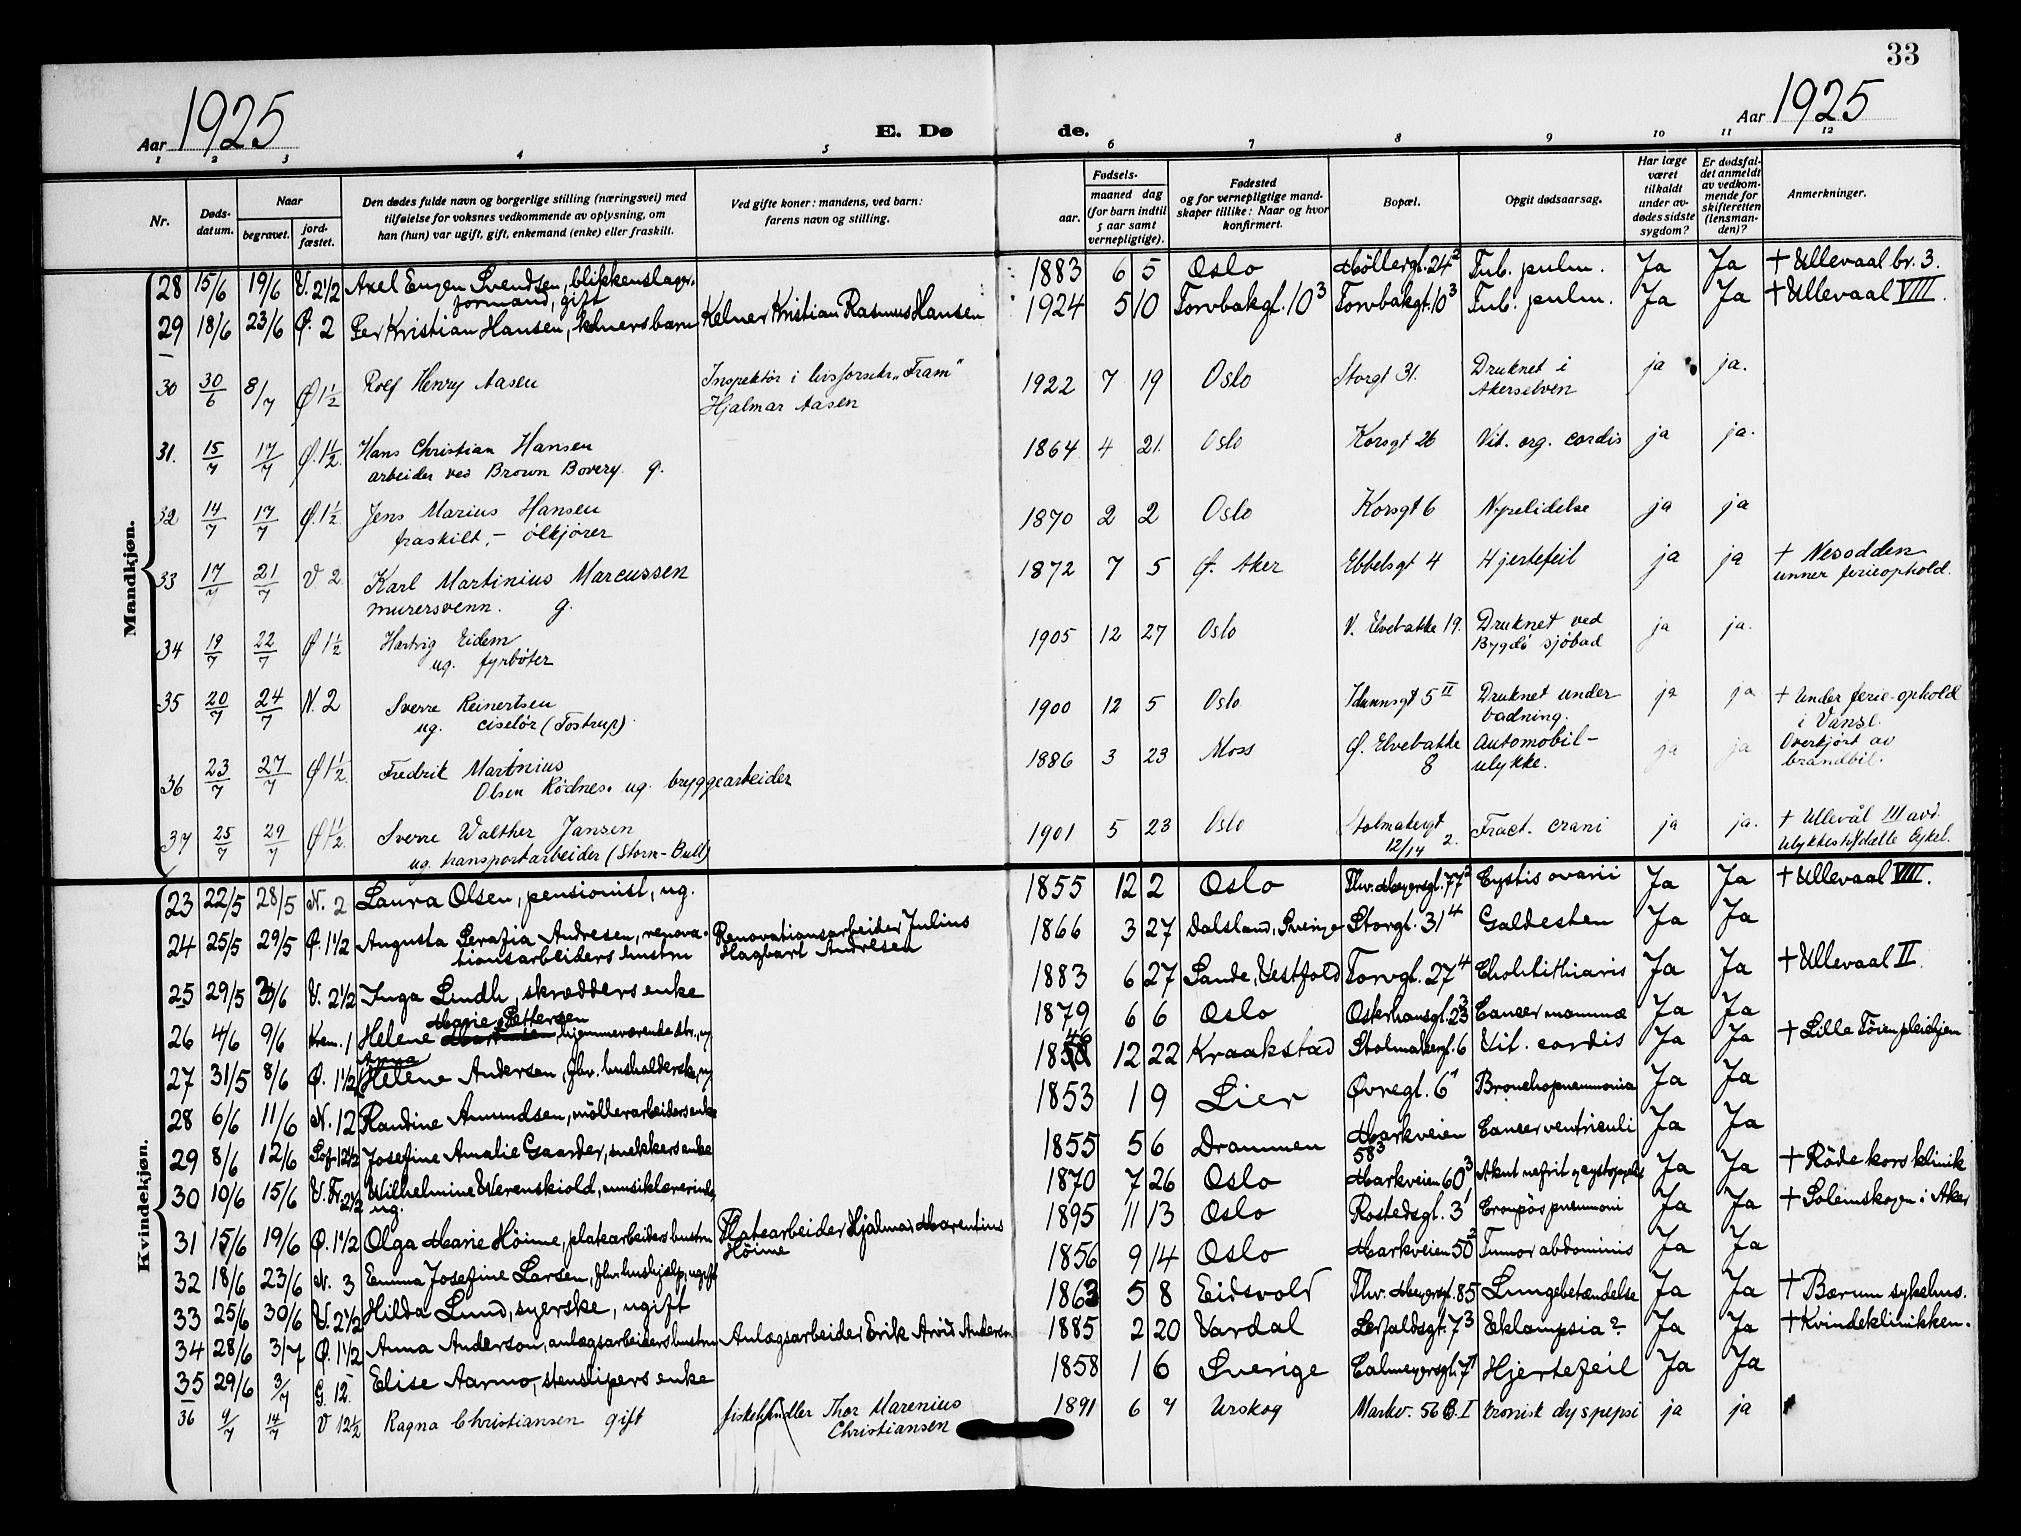 33
Aar 1925
E. Dø
de.
Aar 1925
1 2 3 4 5 6 7 8 9 10 11 12
Nr.
Døds-
datum.
Naar
begravet.
jord-
fæstet.
Den dødes fulde navn og borgerlige stilling (næringsvei) med
tilføielse for voksnes vedkommende av oplysning, om
han (hun) var ugift, gift, enkemand (enke) eller fraskilt.
Ved gifte koner: mandens, ved barn:
farens navn og stilling.
Fødsels-
aar.
maaned dag
(for barn indtil
5 aar samt
vernepligtige).
Fødested
og for vernepligtige mand-
skaper tillike: Naar og hvor
konfirmert.
Bopæl.
Opgit dødsaarsag.
Har læge
været
tilkaldt
under av-
dødes sidste
sygdom?
Er dødsfal-
det anmeldt
av vedkom-
mende for
skifteretten
(lensman-
den)?
Anmerkninger.
Mandkjøn.
28 15/6 19/6 V. 2 1/2 Axel Eugen Svendsen, blikkenslager- 1883 6 5 Oslo Møllergt. 24² Tub. pulm. Ja Ja + Ullevaal br. 3.
formand, gift
29 18/6 23/6 Ø. 2 Per Kristian Hansen, kelnersbarn Kelner Kristian Rasmus Hansen 1924 5 10 Torvbakgt. 10³ Torvbakgt. 10³ Tub. pulm. Ja Ja + Ullevaal VIII.
30 30/6 8/7 Ø 1 1/2 Rolf Henry Aasen Inspektør i livsforsikr. „Fram" 1922 7 19 Oslo Storgt 31. Druknet i ja ja.
Hjalmar Aasen Akerselven
31. 15/7 17/7 Ø. 1 1/2. Hans Christian Hansen 1864 4 21. Oslo Korsgt 26 Vit. org. cordis ja ja.
arbeider ved Brown Bovery. g.
32 14/7 17/7 Ø. 1 1/2. Jens Marius Hansen 1870 2 2 Oslo Korsgt 6 Nyrelidelse ja ja
fraskilt, - ølkjører
33 17/7 21/7 V 2. Karl Martinius Marcussen 1872 7 5 Ø. Aker Ebbelsgt 4 Hjertefeil ja ja + Nesodden
murersvenn. g. unner ferieophold.
34 19/7 22/7 Ø 1 1/2 Hartvig Eidem 1905 12 27 Oslo V. Elvebakke 19. Druknet ved ja ja.
ug. fyrbøter Bygdø sjöbad
35 20/7 24/7 N. 2 Sverre Reinertsen 1900 12 5 Oslo Idunnsgt 5 II Druknet under ja ja + Under ferie-ophold
ug. ciselör (Tostrup) badning. i Vanse.
36 23/7 27/7 Ø 1 1/2. Fredrik Martinius 1886 3 23 Moss Ø. Elvebakke Automobil- ja ja Overkjørt av
Olsen Rödnes. ug. bryggearbeider 8 ulykke. brandbil.
37 25/7 29/7 Ø 1 1/2. Sverre Walther Jansen 1901 5 23 Oslo Stolmakergt Fract. crani ja ja. + Ullevål III avd.
ug. transportarbeider (Storm-Bull) 12/14 2. Ulykkestilfælle Cykel.
Kvindekjøn.
23 22/5 28/5 N. 2 Laura Olsen, pensionist, ug. 1855 12 2 Oslo Thv. Meyersgt. 77² Cystis ovarii Ja Ja + Ullevaal VIII.
24 25/5 29/5 Ø. 1 1/2 Augusta Serafia Andresen, renova- Renovationsarbeider Julius 1866 3 27 Dalsland, Sverige Storgt. 31⁴ Galdesten Ja Ja
tionsarbeiders hustru Hagbart Andresen
25 29/5 3/6 V. 2 1/2 Inga Lindh, skrædders enke 1883 6 27 Sande, Vestfold Torvgt. 27⁴ Cholilithiaris Ja Ja + Ullevaal II.
Marie Pettersen
26 4/6 9/6 Krem. 1 Helene hjemmeværende dtr., ug 1879 6 6 Oslo Osterhausgt. 23³ Cancer mammæ Ja Ja
Anna
27 31/5 8/6 Ø. 1 1/2 Helene Andersen, fhv. husholderske, ug 1846 12 22 Kraakstad Stolmakergt. 6 Vit. cordis Ja Ja + Lille Tøien pleiehjem
28 6/6 11/6 N. 12 Randine Amundsen, möllerarbeiders enke 1853 1 9 Lier Øvregt. 6¹ Bronchopneumonia Ja Ja
29 8/6 12/6 Sof. 12 1/2 Josefine Amalie Gaarder, snekkers enke 1855 5 6 Drammen Markveien Cancer ventriculi Ja Ja
58³
30 10/6 15/6 V. Fr. 2 1/2 Wilhelmine Werenskiold, musiklærerinde 1870 7 26 Oslo Markveien 60³ Akut nefrit Ja Ja + Røde kors klinik
ug.
31 15/6 19/6 Ø. 1 1/2 Olga Marie Høime, platearbeiders hustru Platearbeider Hjalmar Marentius 1895 11 13 Oslo Rostedsgt. 3¹ Croupøs pneumoni Ja Ja + Solemskogen i Aker
Høime
32 18/6 23/6 N. 3 Emma Josefine Larsen, fhv. hushjelp, ugift 1856 9 14 Oslo Markveien 50² Tumor abdominis Ja Ja
33 25/6 30/6 V. 2 1/2 Hilda Lund, syerske, ugift 1863 5 8 Eidsvold Thv. Meyersgt. 85 Lungebetændelse Ja Ja + Bærum sykehus.
34 28/6 3/7 Ø. 1 1/2 Anna Anderson, anlægsarbeiders hustru Anlægsarbeider Erik Arvid Anderson 1885 2 20 Vardal Leirfaldsgt. 7³ Eklampsia? Ja Ja + Kvindeklinikken.
35 29/6 3/7 G. 12. Elise Aarmo, stenslipers enke 1858 1 6 Sverige Calmeyersgt. 7¹ Hjertefeil Ja Ja
36 9/7 14/7 V 12 1/2 Ragna Christiansen gift fiskehandler Thor Marenius 1891 6 7 Urskog Markv. 56 B. I Kronisk dyspepsi ja ja
Christiansen